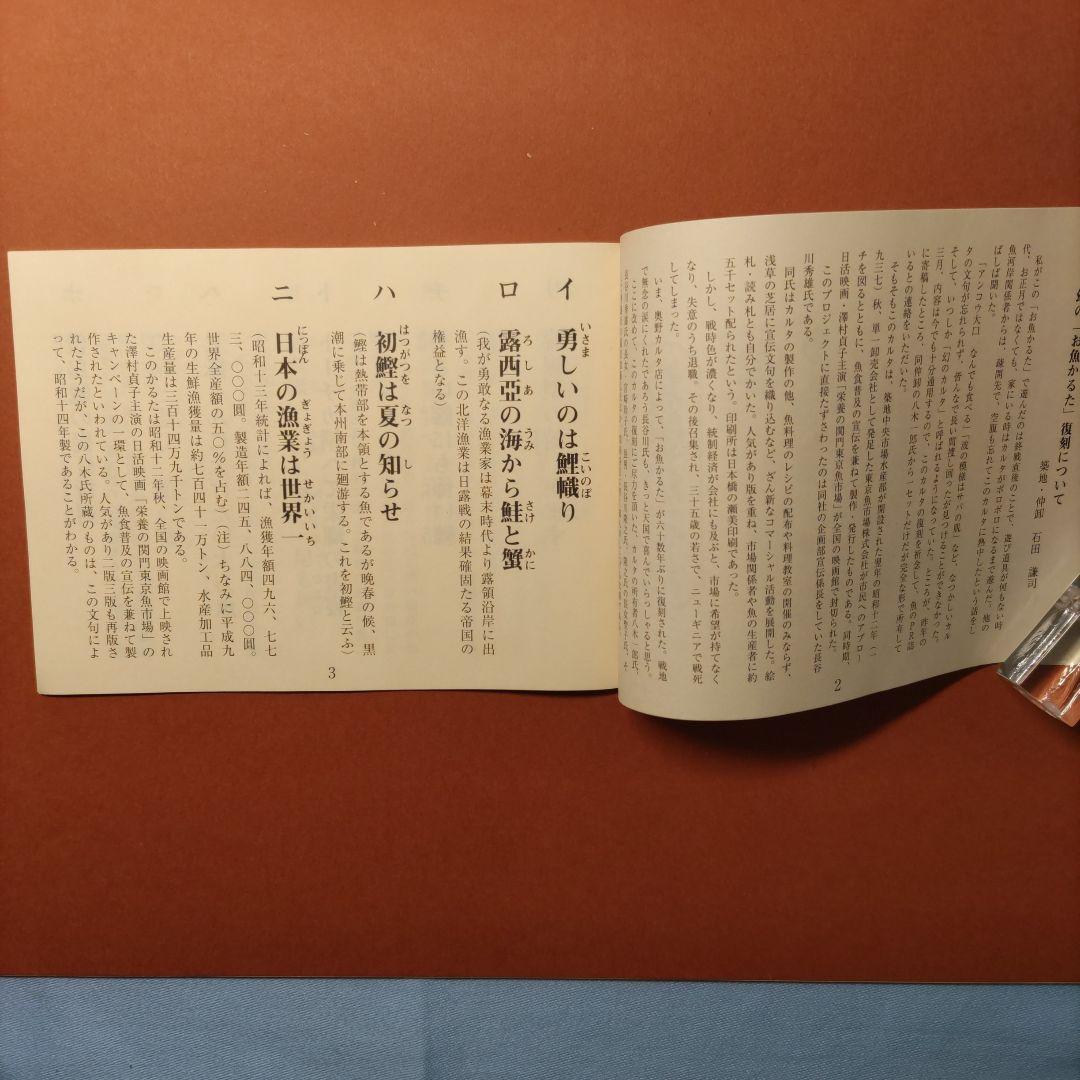 「お魚かるた」復刻について
築地・仲卸　石田　謙司
私がこの「お魚かるた」で遊んだのは終戦直後のことで、遊び道具が何もない時
代、お正月ではなくても、家にいる時はカルタがボロボロになるまで遊んだ。他の
魚河岸関係者からは、疎開先で、空腹も忘れてこのカルタに熱中したという話をし
ばしば聞いた。
「アンコウ大口　なんでも食べる」「皮の模様はサバの風」など、なつかしいカル
タの文句が忘れられず、皆んなで長い間捜し回ったが見つけることができなかった。
そして、いつしか「幻のカルタ」と呼ばれるようになっていた。ところが、昨年の
三月、内容は今でも十分通用するので、このカルタの復刻を祈念して、魚のPR誌
に寄稿したところ、同仲卸の八木一郎氏から一セットだけだが完全な形で所有して
いるとの連絡をいただいた。
そもそもこのカルタは、築地中央市場水産部が開設された翌年の昭和十二年（一
九三七）秋、単一卸売会社として発足した東京魚市場株式会社が市民へのアプロー
チを図るとともに、魚食普及の宣伝を兼ねて製作・発行したものである。同時期、
日活映画・澤村貞子主演「栄養の関門東京魚市場」が全国の映画館で封切られた。
このプロジェクトに直接たずさわったのは同社の企画部宣伝係長をしていた長谷
川秀雄氏である。
同氏はカルタの製作の他、魚料理のレシピの配布や料理教室の開催のみならず、
浅草の芝居に宣伝文句を織り込むなど、ざん新なコマーシャル活動を展開した。絵
札・読み札とも自分でかいた。人気があり版を重ね、市場関係者や魚の生産者に約
五千セット配られたという。印刷所は日本橋の瀬美印刷であった。
しかし、戦時色が濃くなり、統制経済が会社にも及ぶと、市場に希望が持てなく
なり、失意のうち退職。その後召集され、三十五歳の若さで、ニューギニアで戦死
してしまった。
いま、奥野カルタ店によって、「お魚かるた」が六十数年ぶりに復刻された。戦地
で無念の涙にくれたであろう長谷川氏も、きっと天国で喜んでいらっしゃると思う。
ここに改めて、このカルタの復刻にご尽力を頂いた、カルタの所有者八木一郎氏、
2
イ　勇しいのは鯉幟り
いさま　こいのぼ
ロ　露西亞の海から鮭と蟹
ろしあ　うみ　さけ　かに
（我が勇敢なる漁業家は幕末時代より露領沿岸に出
漁す。この北洋漁業は日露戦の結果確固たる帝国の
権益となる）
ハ　初鰹は夏の知らせ
はつがつを　なつ　し
（鰹は熱帯部を本領とする魚であるが晩春の候、黒
潮に乗じて本州南部に廻游する。これを初鰹と云ふ）
ニ　日本の漁業は世界一
にっぽん　ぎょぎょう　せかいいち
（昭和十三年統計によれば、漁獲年額四九六、七七
三、〇〇〇圓。製造年額二四五、八八四、〇〇〇圓。
世界全産額の五〇％を占む）（注）ちなみに平成九
年の生鮮漁獲量は約七百四十一万トン、水産加工品
生産量は三百十四万九千トンである。
このかるたは昭和十二年秋、全国の映画館で上映され
た澤村貞子主演の日活映画「栄養の関門東京魚市場」の
キャンペーンの一環として、魚食普及の宣伝を兼ねて製
作されたといわれている。人気があり二版三版も再版さ
れたようだが、この八木氏所蔵のものは、この文句によ
って、昭和十四年製であることがわかる。
3